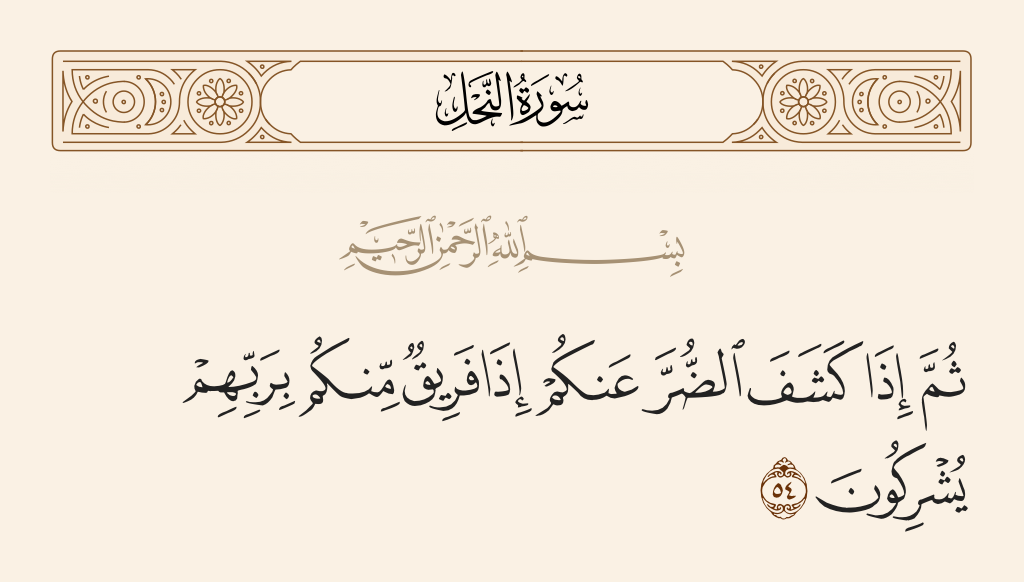 سُورَةُ النَّحْلِ
بِسْمِ ٱللَّهِ ٱلرَّحْمَٰنِ ٱلرَّحِيمِ
ثُمَّ إِذَا كَشَفَ ٱلضُّرَّ عَنكُمْ إِذَا فَرِيقٌ مِّنكُم بِرَبِّهِمْ
يُشْرِكُونَ ٥٤